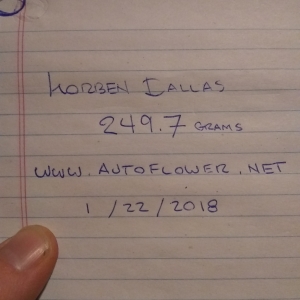 KORBEN DALLAS
249.7 GRAMS
WWW.AUTOFLOWER.NET
1/22/2018